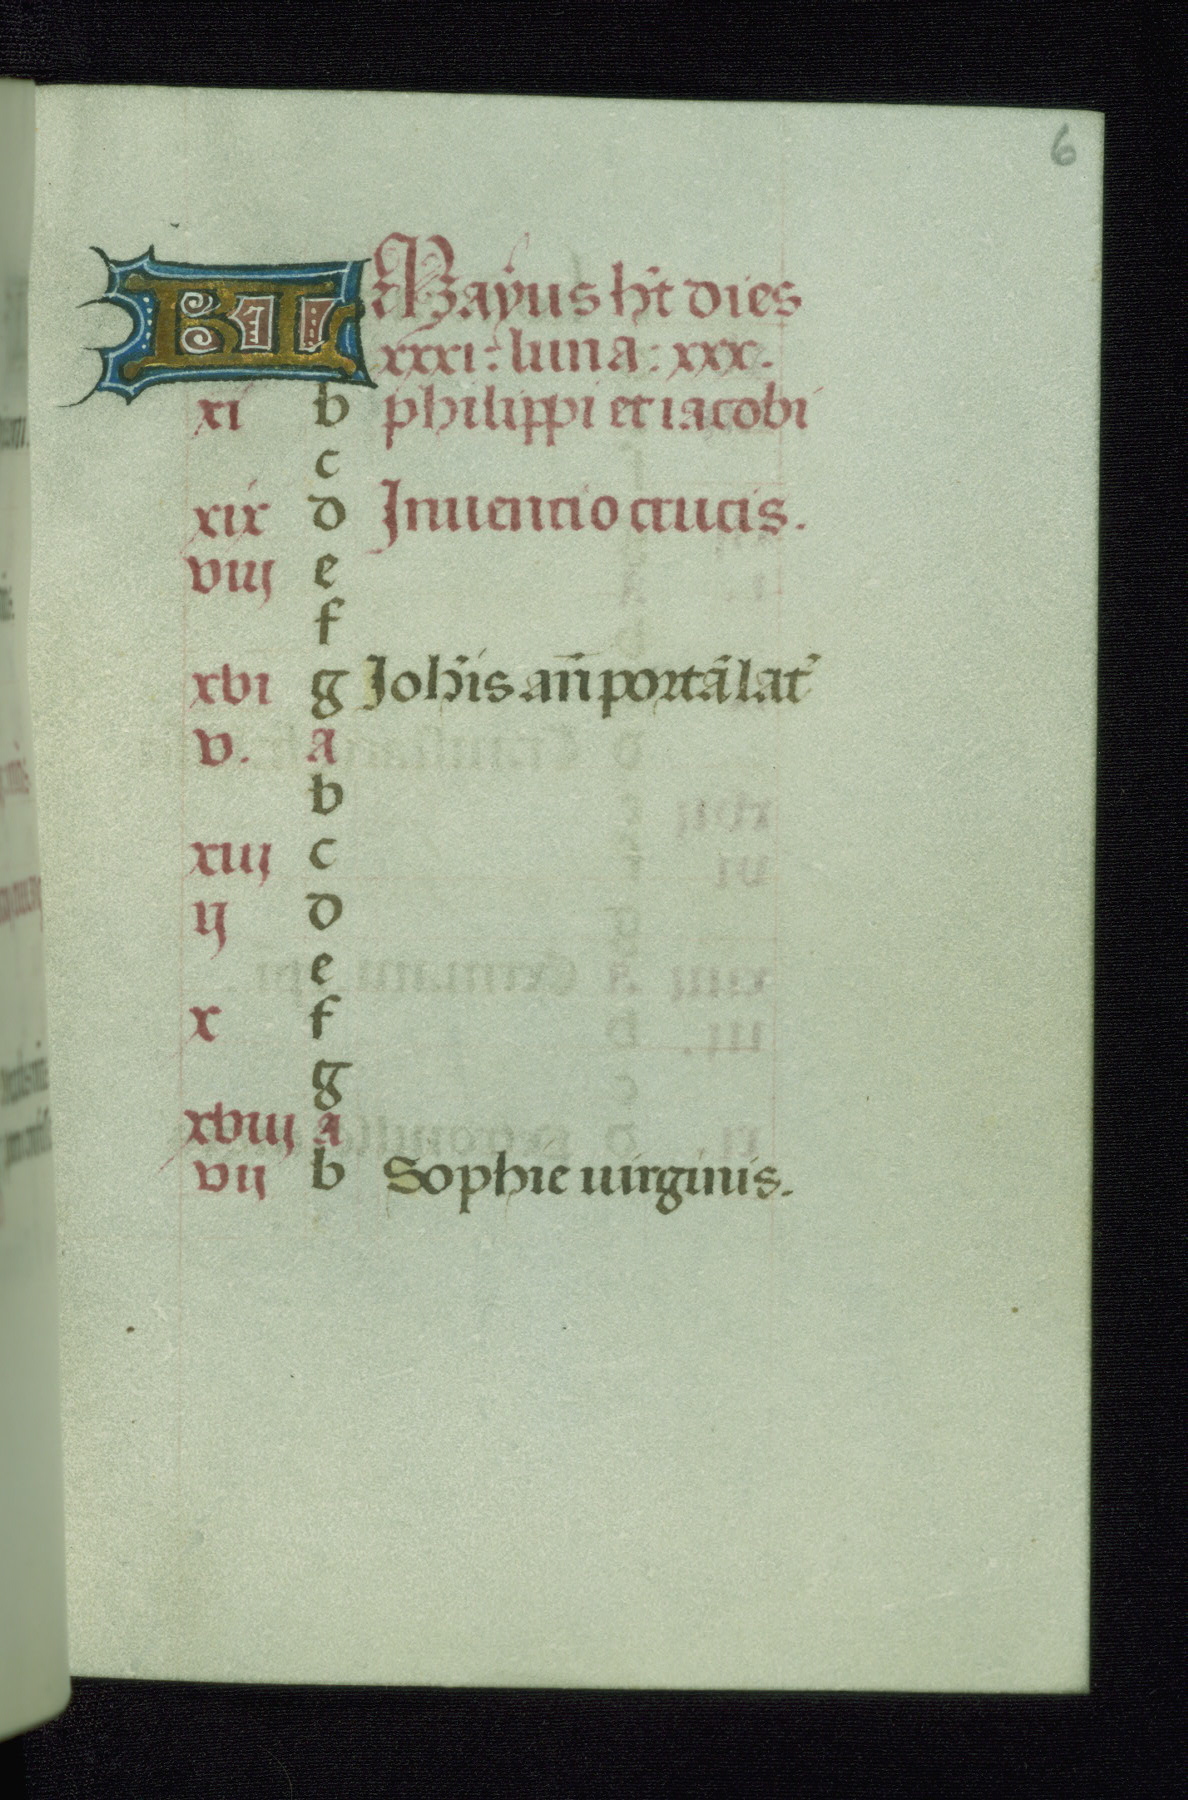 6
KL Mayus ht dies
xxxi: luna: xxx.
xi b philippi et iacobi
c
xix d Inuencio crucis.
viij e
f
xvi g Johis an porta lat
v. a
b
xiij c
ij d
e
x f
g
xviij a
vij b Sophie uirginis.